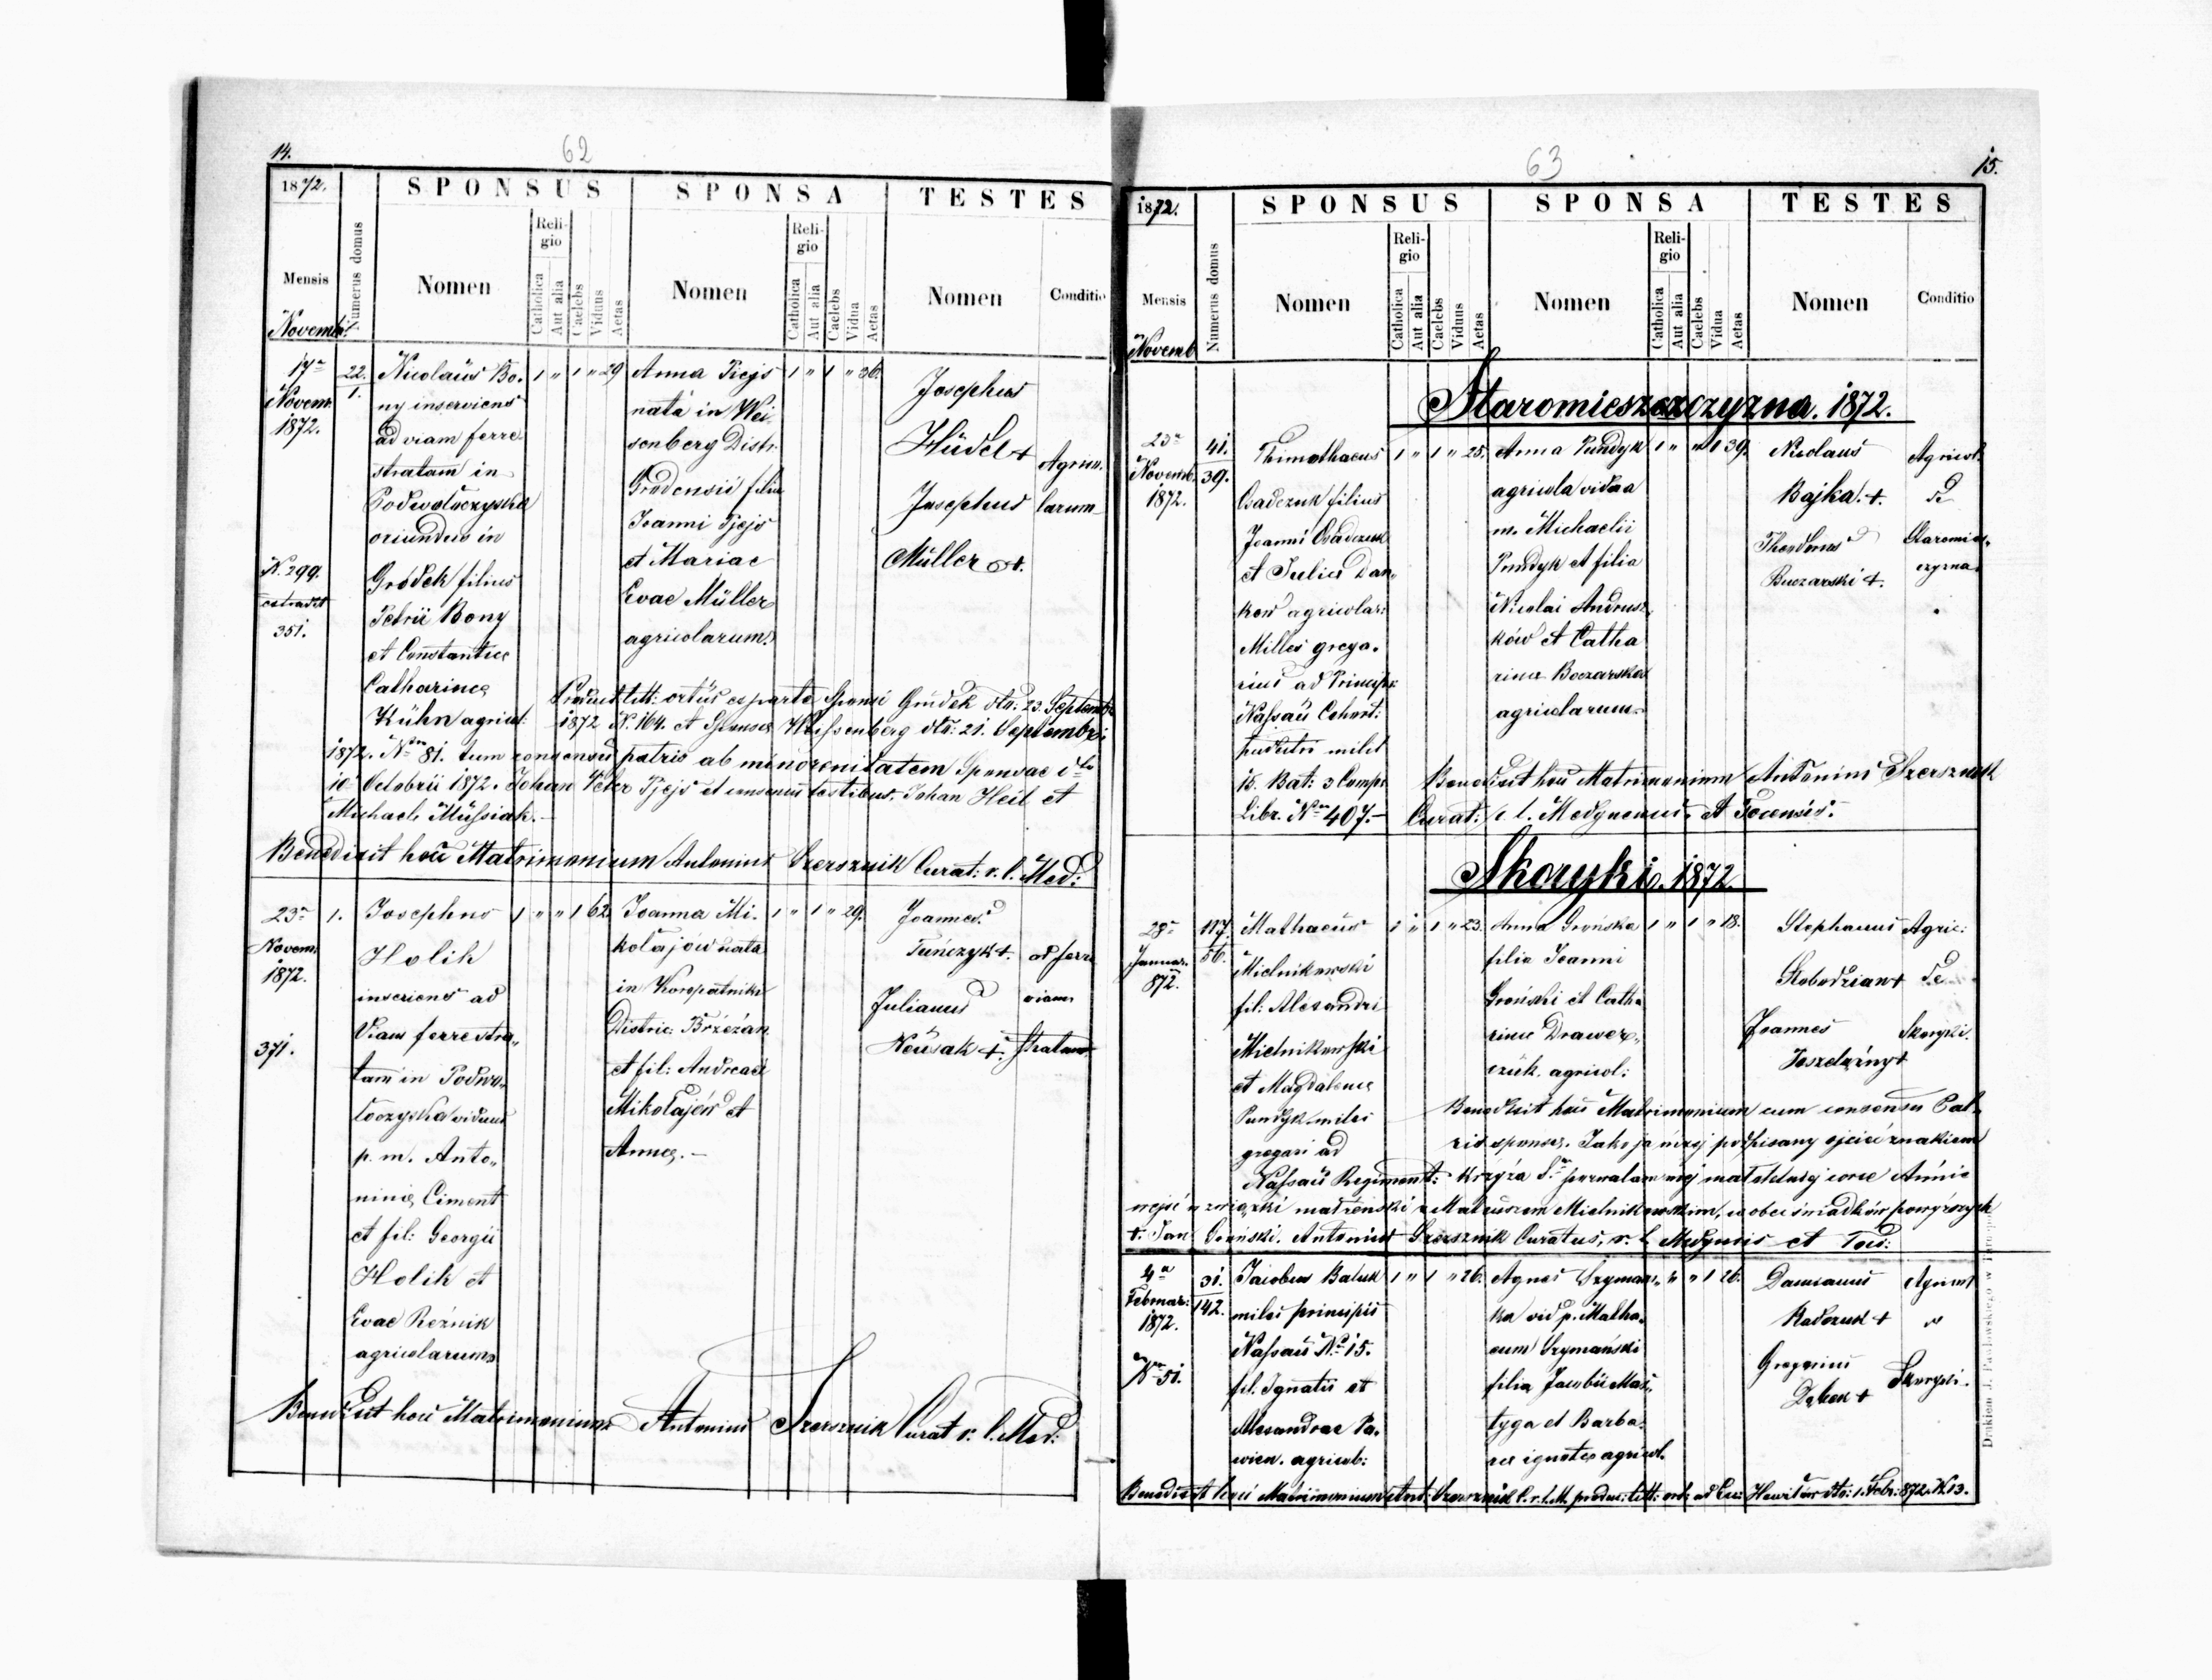 14.
62
1872.
SPONSUS
SPONSA
TESTES
Mensis
Numerus domus
Nomen
Religio
Catholica
Aut alia
Caelebs
Viduus
Aetas
Nomen
Religio
Catholica
Aut alia
Caelebs
Vidua
Aetas
Nomen
Conditio
Novembr.
17a Novem. 1872.
22. 1.
N. 299.
351.
Nicolaüs Bo-
ny inserviens
ad viam ferre-
stratam in
Podwołoczyska
oriundus in
Gródek filius
Petrii Bony
et Constantiae
Catharinae
Kühn agricol:
1 " 1 " 29
Anna Piejs
nata in Wei-
senberg Distr.
Grodensii filia
Joanni Pjejs
et Mariae
Evae Müller
agricolarum.
1 " 1 " 26.
Josephus
Hüdel +
Josephus
Müller +.
Agrico-
larum
ortus ex parte Sponsi Grudek dto: 23. Septembr
1872 N. 164. et Sponsae Weissenberg dto: 21. Septembri
1872. Nro 81. tum consensus patris ab minorenitatem Sponsae dto
10 Octobrii 1872. Johan Peter Pjejs et testibus. Johan Heil et
Michael Müssiak.
Benedixit hoc Matrimonium Antonius Szersznik Curat: r. l. Med:
23a Novem. 1872.
1.
371.
Josephus
Holik
inseriens ad
Viam ferrestra-
tam in Podwo-
łoczyska viduus
p. m. Anto-
ninae Ciment
et fil: Georgii
Holik et
Evae Reźnik
agricolarum
1 " " 1 62.
Joanna Mi-
kołajów nata
in Koropatniki
Distric: Brzeżan.
et fil: Andreae
Mikołajów et
Annae.
1 " 1 " 29.
Joannes
Tunczyk +.
Julianus
Neusak +.
ad ferre
viam
stratam
Benedixit hoc Matrimonium Antonius Szersznik Curat r. l. Med:
63
15.
1872.
SPONSUS
SPONSA
TESTES
Mensis
Numerus domus
Nomen
Religio
Catholica
Aut alia
Caelebs
Viduus
Aetas
Nomen
Religio
Catholica
Aut alia
Caelebs
Vidua
Aetas
Nomen
Conditio
Novemb
Staromieszczyzna. 1872.
23a Novemb. 1872.
41. 39.
Thimothaeus
Osadczuk filius
Joanni Osadczuk
et Juliae Dan-
kow agricolar:
Milles grega-
rius ad Principis
Nassau Cohort:
15. Bat: 3 Comp:
Libr. Nro 407.
1 " 1 " 25.
Anna Pundyk
agricola vidua
m. Michaelii
Pundyk et filia
Nicolai Andrusz-
ków et Catha
rinae Boczarska
agricolarum
1 " " 1 39.
Nicolaus
Bajka. +.
Theodorus
Buczarski +.
Agricol.
de
Staromies-
czyzna
Benedixit hoc Matrimonium Antonius Szersznik
Curat: r. l. Medynensis et Tocensis.
Skoryki. 1872.
28a Januar. 872.
117. 56.
Mathaeus
Mielnikowski
fil: Alexandri
Mielnikowski
et Magdalenae
Pundyk miles
gregari ad
Nassau Regiment:
1 " 1 " 23.
Anna Grońska
filia Joanni
Groński et Catha
rinae Drawer-
czuk. agricol:
1 " 1 " 18.
Stephanus
Slobodzian +
Joannes
+
Agric:
de
Skoryki.
Benedixit hoc Matrimonium cum consensu Pat-
ris sponsae. Jako ja niżej podpisany ojciec znakiem
krzyża pozwalam mej małoletniej córce Annie
wejść w związki małżeński z Mateuszem Mielnikowskim, w obec świadków powyższych
+. Jan Groński. Antonius Szersznik Curatus, r. l. Medynis et Toci:
4a Februar: 1872.
31. 142.
Nro 51.
Jacobus Baluk
miles principis
Nassau No 15.
fil. Ignatii et
Alexandrae Pa-
wien. agricol:
1 " 1 " 26.
Agnes Szymans-
ka vid p. Matha-
eum Szymański
filia Jacobii Mas-
tyga et Barba-
rae ignotae agricol.
" " 1 26.
Damianus
Radczuk +
Gregorius
Dębek +
Agricol
"
Skoryki.
Benedixit hoc Matrimonium Ant: Szersznik C. r. l. M. produc: litt: ort: dto: 1. Febr: 872. N. 13.